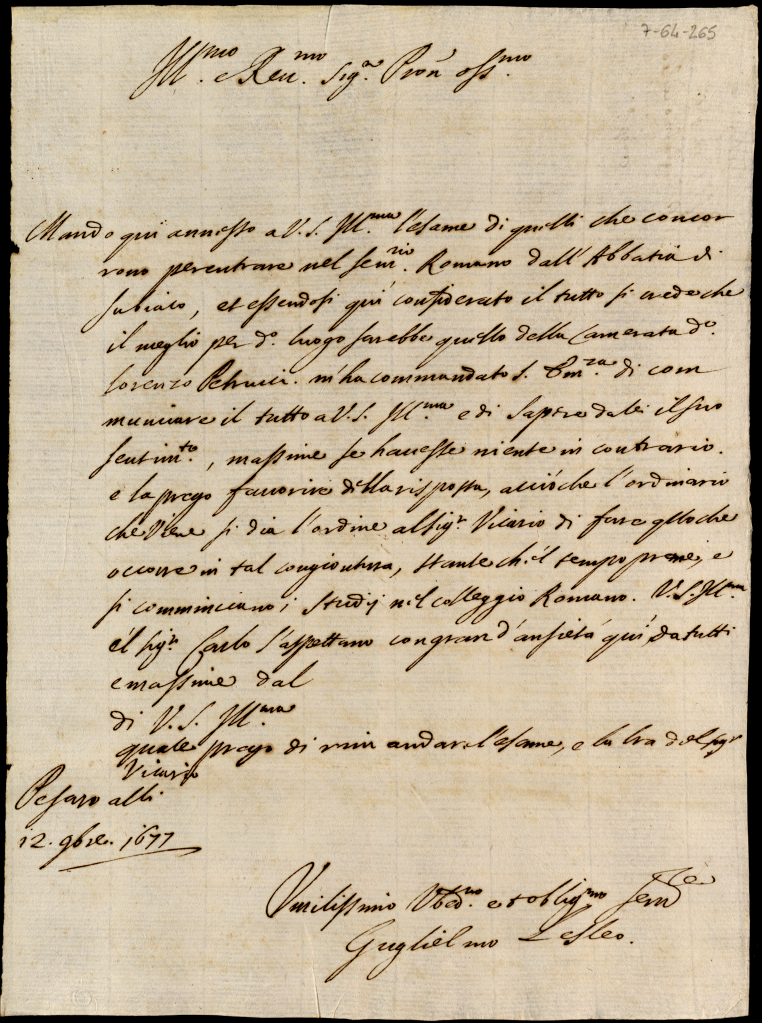 7-64-265
Ill.mo e Reu.mo Sig.r Pron Oss.mo
Mando qui annesso a V. S. Ill.ma l'esame di quelli che concor
rono per entrare nel Sem.rio Romano dall'Abbatia di
Subiaco, et essendosi qui considerato il tutto si crede che
il meglio per d.o luogo sarebbe quello della Camerata d.o
Lorenzo Petrucci. m'ha commandato S. Em.za di com
municare il tutto a V. S. Ill.ma e di sapere da lei il suo
sentim.to, massime se hauesse niente in contrario.
e la prego fauorire della risposta, acciò che l'ordinario
che viene si dia l'ordine al Sig.r Vicario di fare qllo che
occorre in tal congiontura, stante ch'il tempo preme, e
si comminciano i Studij nel Colleggio Romano. V. S. Ill.ma
e'l Sig.r Carlo s'aspettano con gran d'ansietà qui da tutti
e massime dal
di V. S. Ill.ma
quale prego di rimandare l'esame, e la lra del Sig.r
Vicario
Pesaro alli
12. 9bre. 1677
Umilissimo Obed.mo et oblig.mo Seru.re
Guglielmo Lesleo.